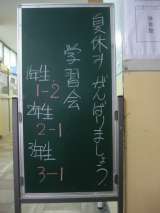 夏休み がんばりましょう
学習会
1年生
1-2
2年生
2-1
3年生
3-1